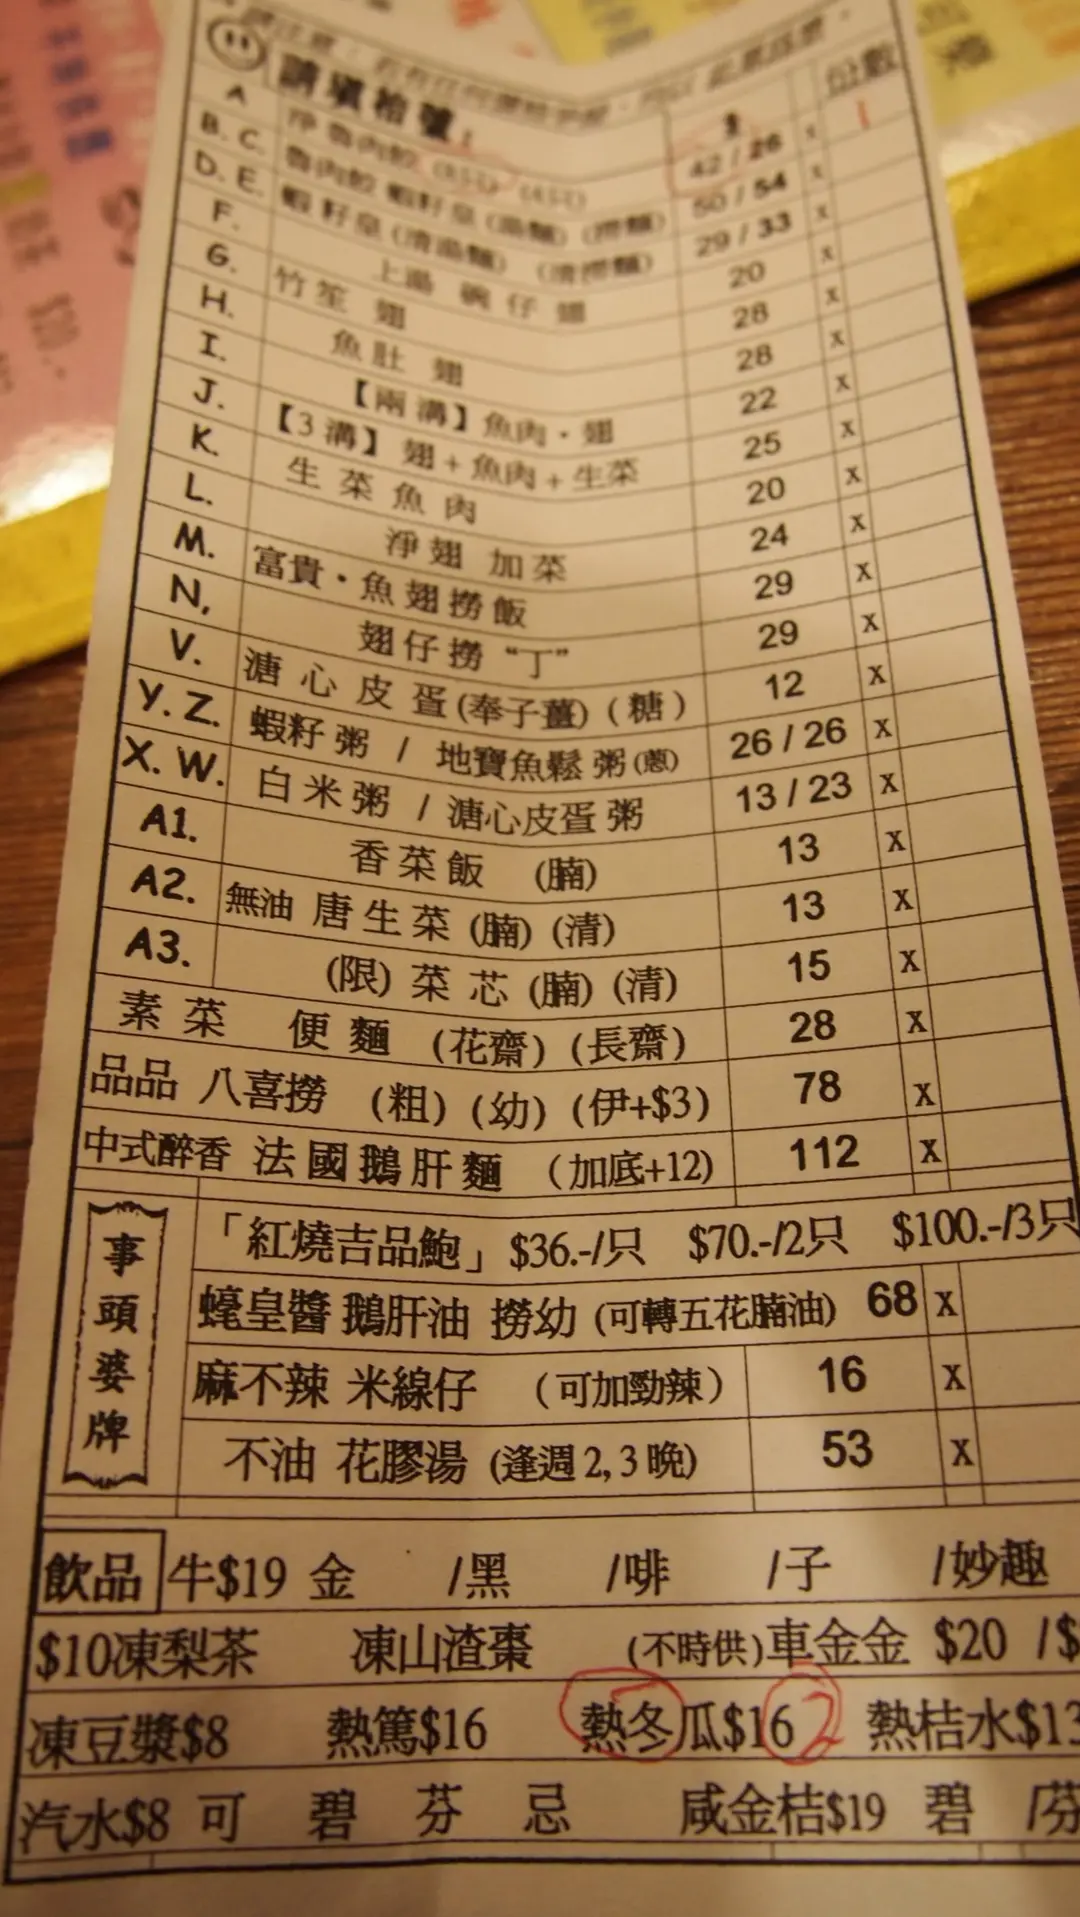 請填枱號：
份數
1
A 淨魯肉餃 42 / 26 x
B. C. 魯肉餃 蝦籽皇 (湯麵) (撈麵) 50 / 54 x
D. E. 蝦籽皇 (清湯麵) (清撈麵) 29 / 33 x
F. 上湯 碗仔翅 20 x
G. 竹笙翅 28 x
H. 魚肚翅 28 x
I. 【兩溝】魚肉·翅 22 x
J. 【3溝】翅+魚肉+生菜 25 x
K. 生菜魚肉 20 x
L. 淨翅 加菜 24 x
M. 富貴·魚翅撈飯 29 x
N, 翅仔撈 “丁” 29 x
V. 溏心皮蛋(奉子薑)(糖) 12 x
Y. Z. 蝦籽粥 / 地寶魚鬆粥(蔥) 26 / 26 x
X. W. 白米粥 / 溏心皮蛋粥 13 / 23 x
A1. 香菜飯 (腩) 13 x
A2. 無油 唐生菜 (腩) (清) 13 x
A3. (限) 菜芯 (腩) (清) 15 x
素菜 便麵 (花齋) (長齋) 28 x
品品 八喜撈 (粗) (幼) (伊+$3) 78 x
中式醉香 法國鵝肝麵 (加底+12) 112 x
事頭婆牌
「紅燒吉品鮑」$36.-/只 $70.-/2只 $100.-/3只
蠔皇醬 鵝肝油 撈幼 (可轉五花腩油) 68 x
麻不辣 米線仔 (可加勁辣) 16 x
不油 花膠湯 (逢週2, 3晚) 53 x
飲品 牛$19 金 /黑 /啡 /子 /妙趣
$10凍梨茶 凍山渣棗 (不時供)車金金 $20 /$
凍豆漿$8 熱篤$16 熱冬瓜$16 2 熱桔水$13
汽水$8 可 碧 芬 忌 咸金桔$19 碧 /芬